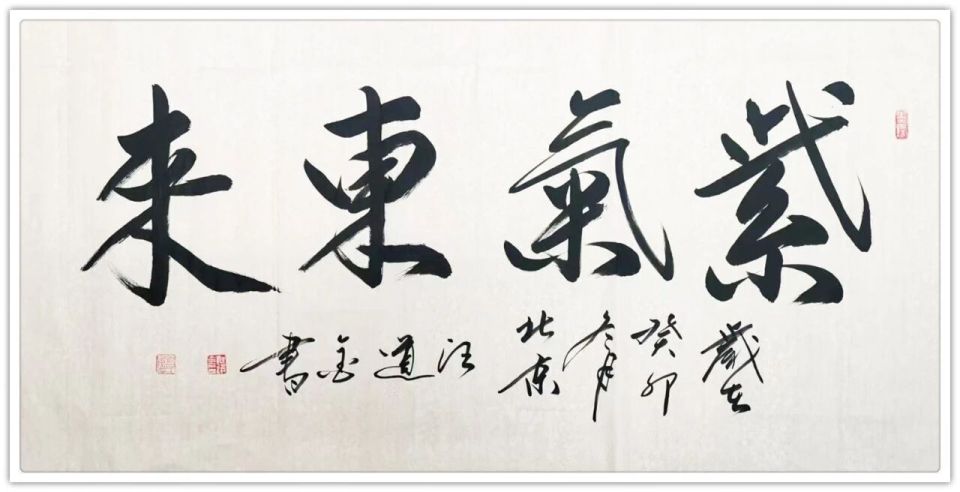 紫氣東來
歲在癸卯冬月北京汪道金書